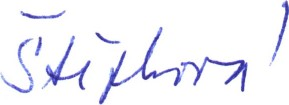 Štěpková